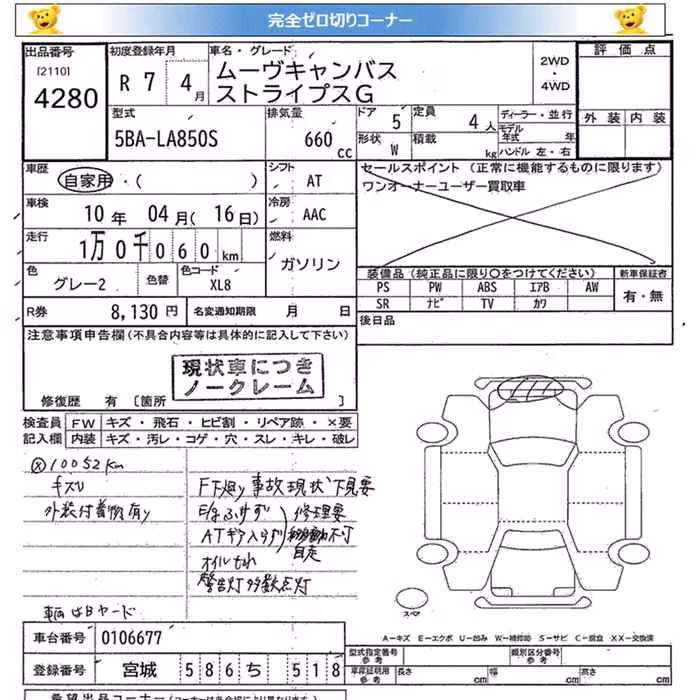 完全ゼロ切りコーナー
出品番号
[2110]
4280
初度登録年月
R 7 年 4 月
車名・グレード
ムーヴキャンバス
ストライプスG
2WD
・
4WD
評価点
外装 内装
型式
5BA-LA850S
排気量
660 cc
ドア 5
定員 4 人
形状 W
積載 kg
ディーラー・並行
モデル年式 年
ハンドル 左・右
車歴
自家用・( )
シフト AT
セールスポイント (正常に機能するものに限ります)
ワンオーナーユーザー買取車
車検
10 年 04 月 ( 16 日)
冷房 AAC
走行
1万0千060 km
燃料
ガソリン
色
グレー2
色替
色コード
XL8
装備品 (純正品に限り○をつけてください)
新車保証書
PS PW ABS エアB AW
SR ナビ TV カワ
有・無
R券 8,130 円
名変通知期限 月 日
後日品
注意事項申告欄 (不具合内容等は具体的に記入して下さい)
現状車につき
ノークレーム
修復歴 有 [箇所 ]
検査員
記入欄
FW キズ・飛石・ヒビ割・リペア跡・×要
内装 キズ・汚レ・コゲ・穴・スレ・キレ・破レ
10052km
キズU
外装付着物有り
FT廻り事故現状下見要
E/gふけず
ATギア入らず
修理要
移動不可
自走
オイルもれ
警告灯多数点灯
車輌はBヤード
スペア
A-キズ E-エクボ U-凹み W-補修跡 S-サビ C-腐食 XX-交換済
車台番号 0106677
型式指定番号
参考
類別区分番号
参考
登録番号 宮城 586 ち 518
車庫証明用
参考
長さ cm 幅 cm 高さ cm
希望出品コーナー